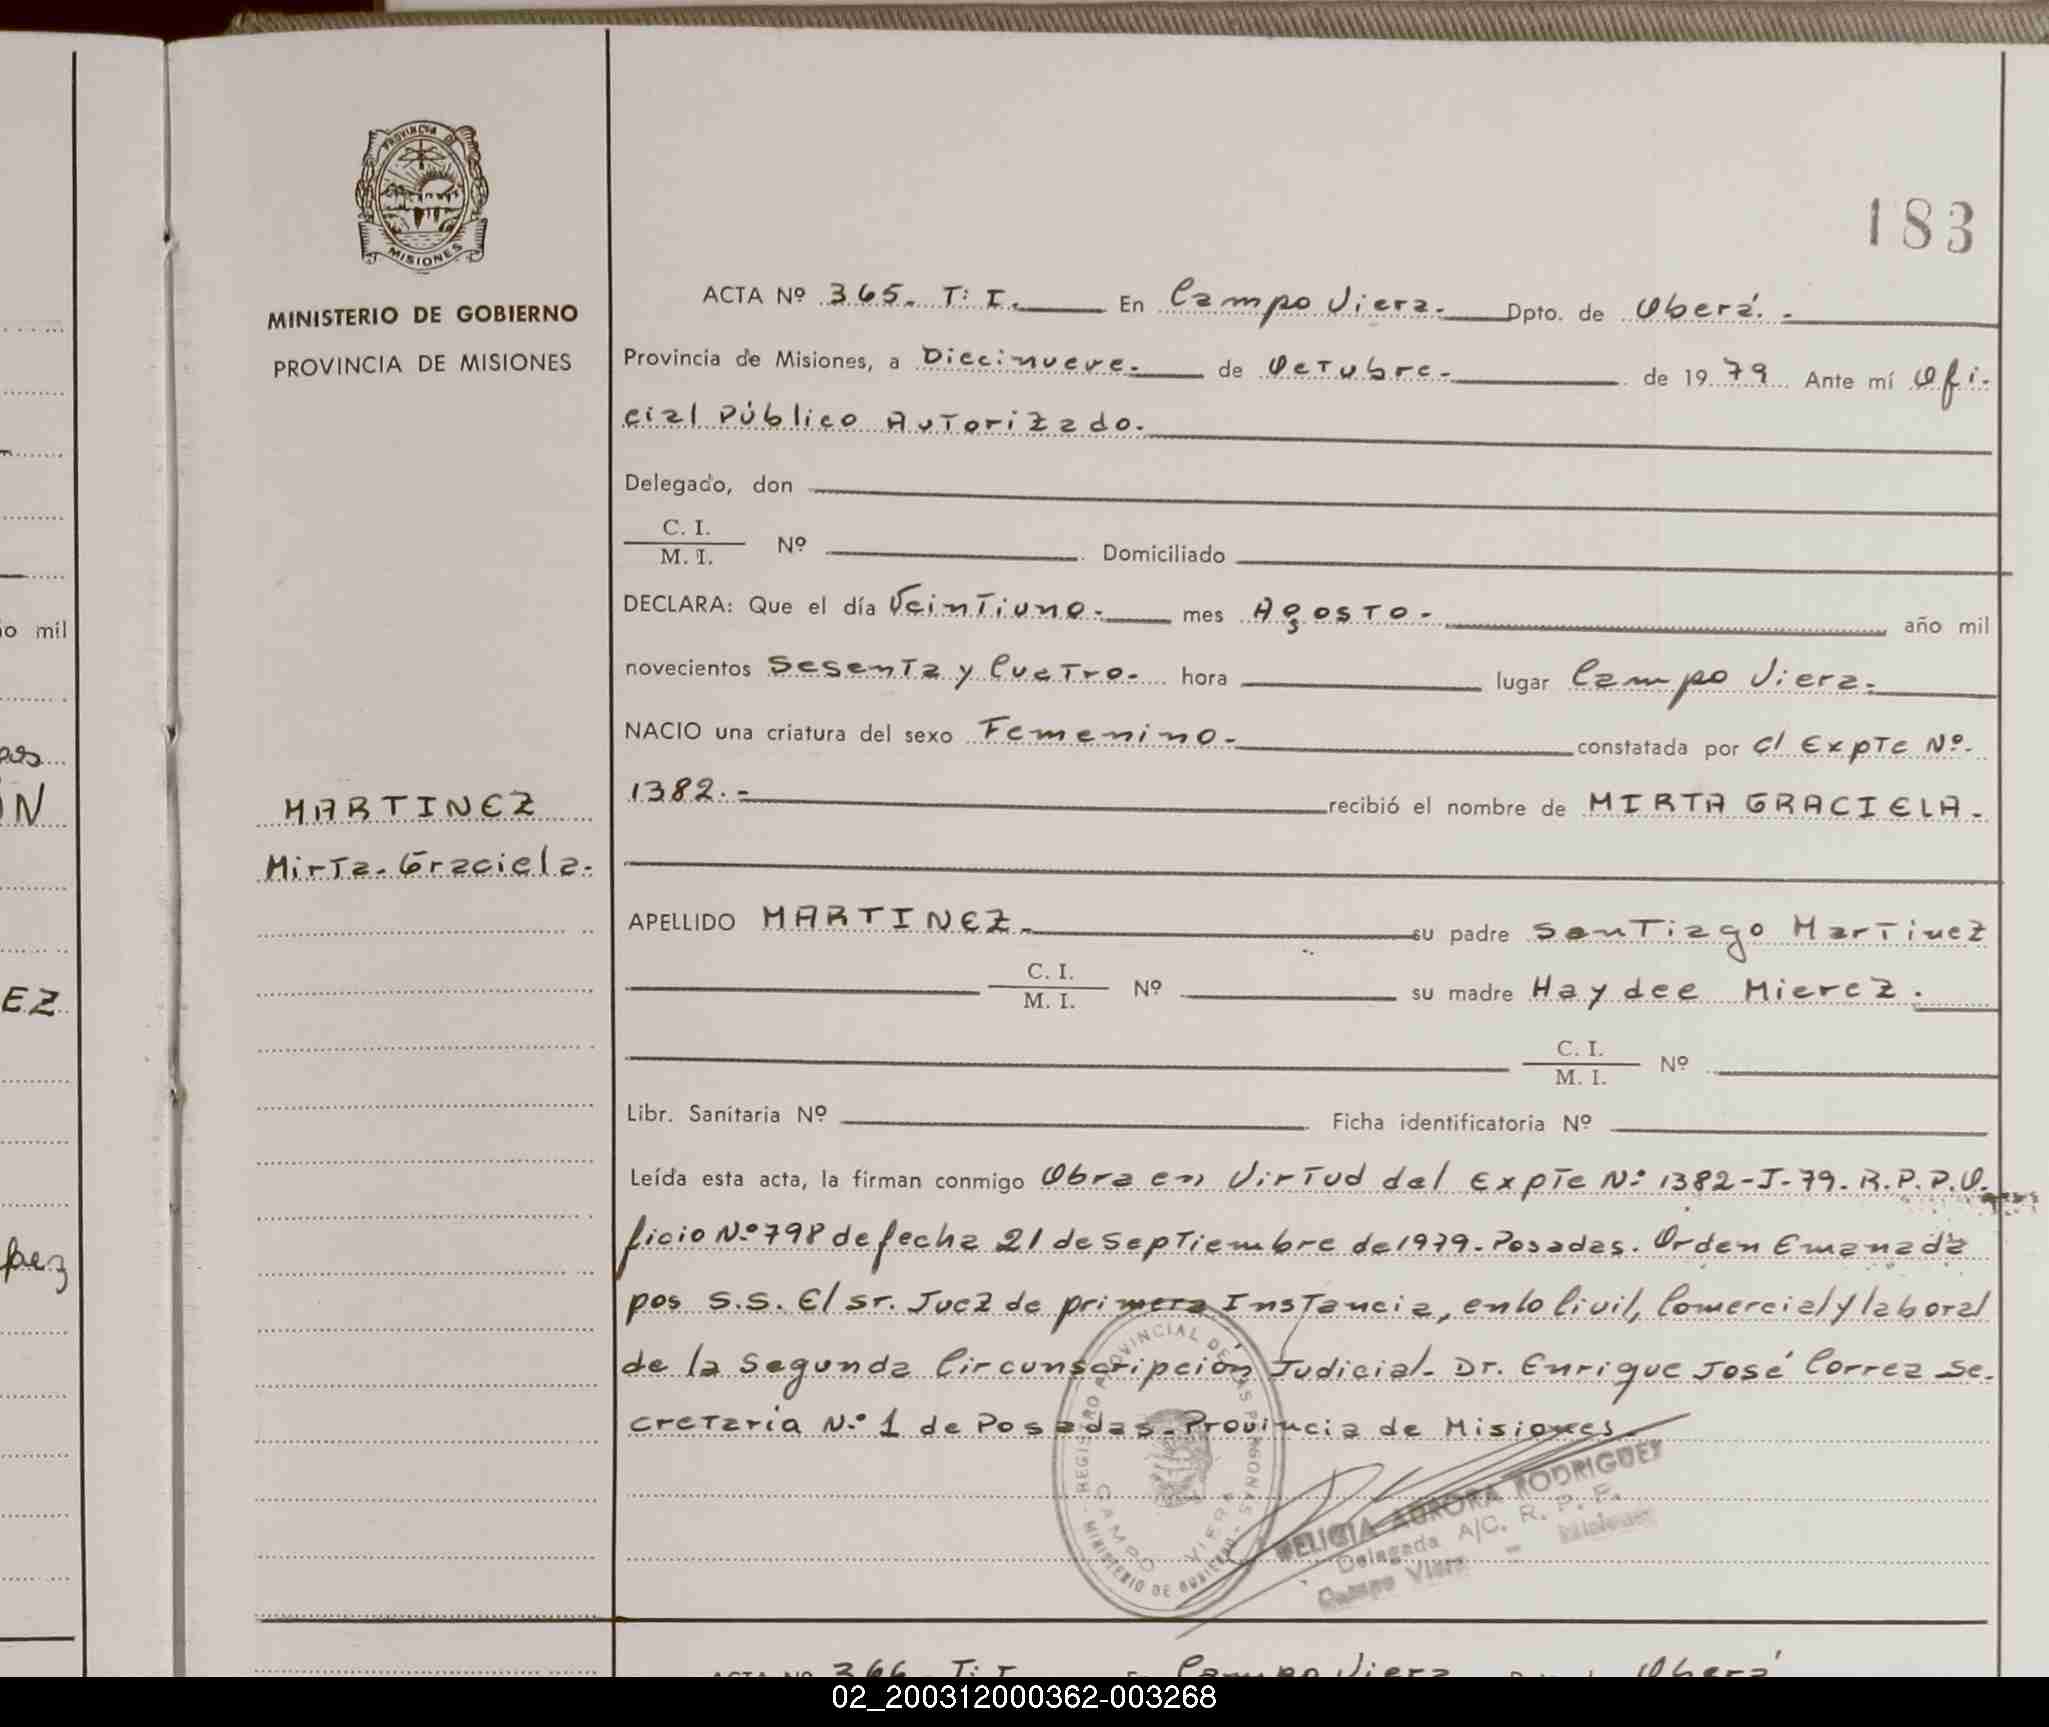 PROVINCIA DE
MISIONES
MINISTERIO DE GOBIERNO
PROVINCIA DE MISIONES
183
ACTA Nº 365. T: I. En Campo Viera. Dpto. de Oberá.-
Provincia de Misiones, a Diecinueve. de Octubre. de 1979 Ante mí Ofi-
cial Público Autorizado.
Delegado, don
C. I.
M. I. Nº Domiciliado
DECLARA: Que el día Veintiuno. mes Agosto- año mil
novecientos Sesenta y Cuatro. hora lugar Campo Viera.
NACIO una criatura del sexo Femenino- constatada por el Expte Nº.
1382.- recibió el nombre de MIRTA GRACIELA-
MARTINEZ
Mirta. Graciela.
APELLIDO MARTINEZ. su padre Santiago Martinez
C. I.
M. I. Nº su madre Haydee Mierez.
C. I.
M. I. Nº
Libr. Sanitaria Nº Ficha identificatoria Nº
Leída esta acta, la firman conmigo Obra en Virtud del Expte Nº 1382-J-79. R.P.P.O.
ficio Nº 798 de fecha 21 de Septiembre de 1979. Posadas. Orden Emanada
pos S.S. El Sr. Juez de primera Instancia, en lo Civil, Comercial y laboral
de la Segunda Circunscripción Judicial. Dr. Enrique José Correa Se-
cretaria N.º 1 de Posadas. Provincia de Misiones.
REGISTRO PROVINCIAL DE LAS PERSONAS
CAMPO VIERA
MINISTERIO DE GOBIERNO
FELICIA AURORA RODRIGUEZ
Delegada A/C. R. P. P.
Campo Viera - Misiones
io mil
IN
EZ
pez
ACTA Nº 366. T: I. En Campo Viera Dpto. de Oberá
02_200312000362-003268